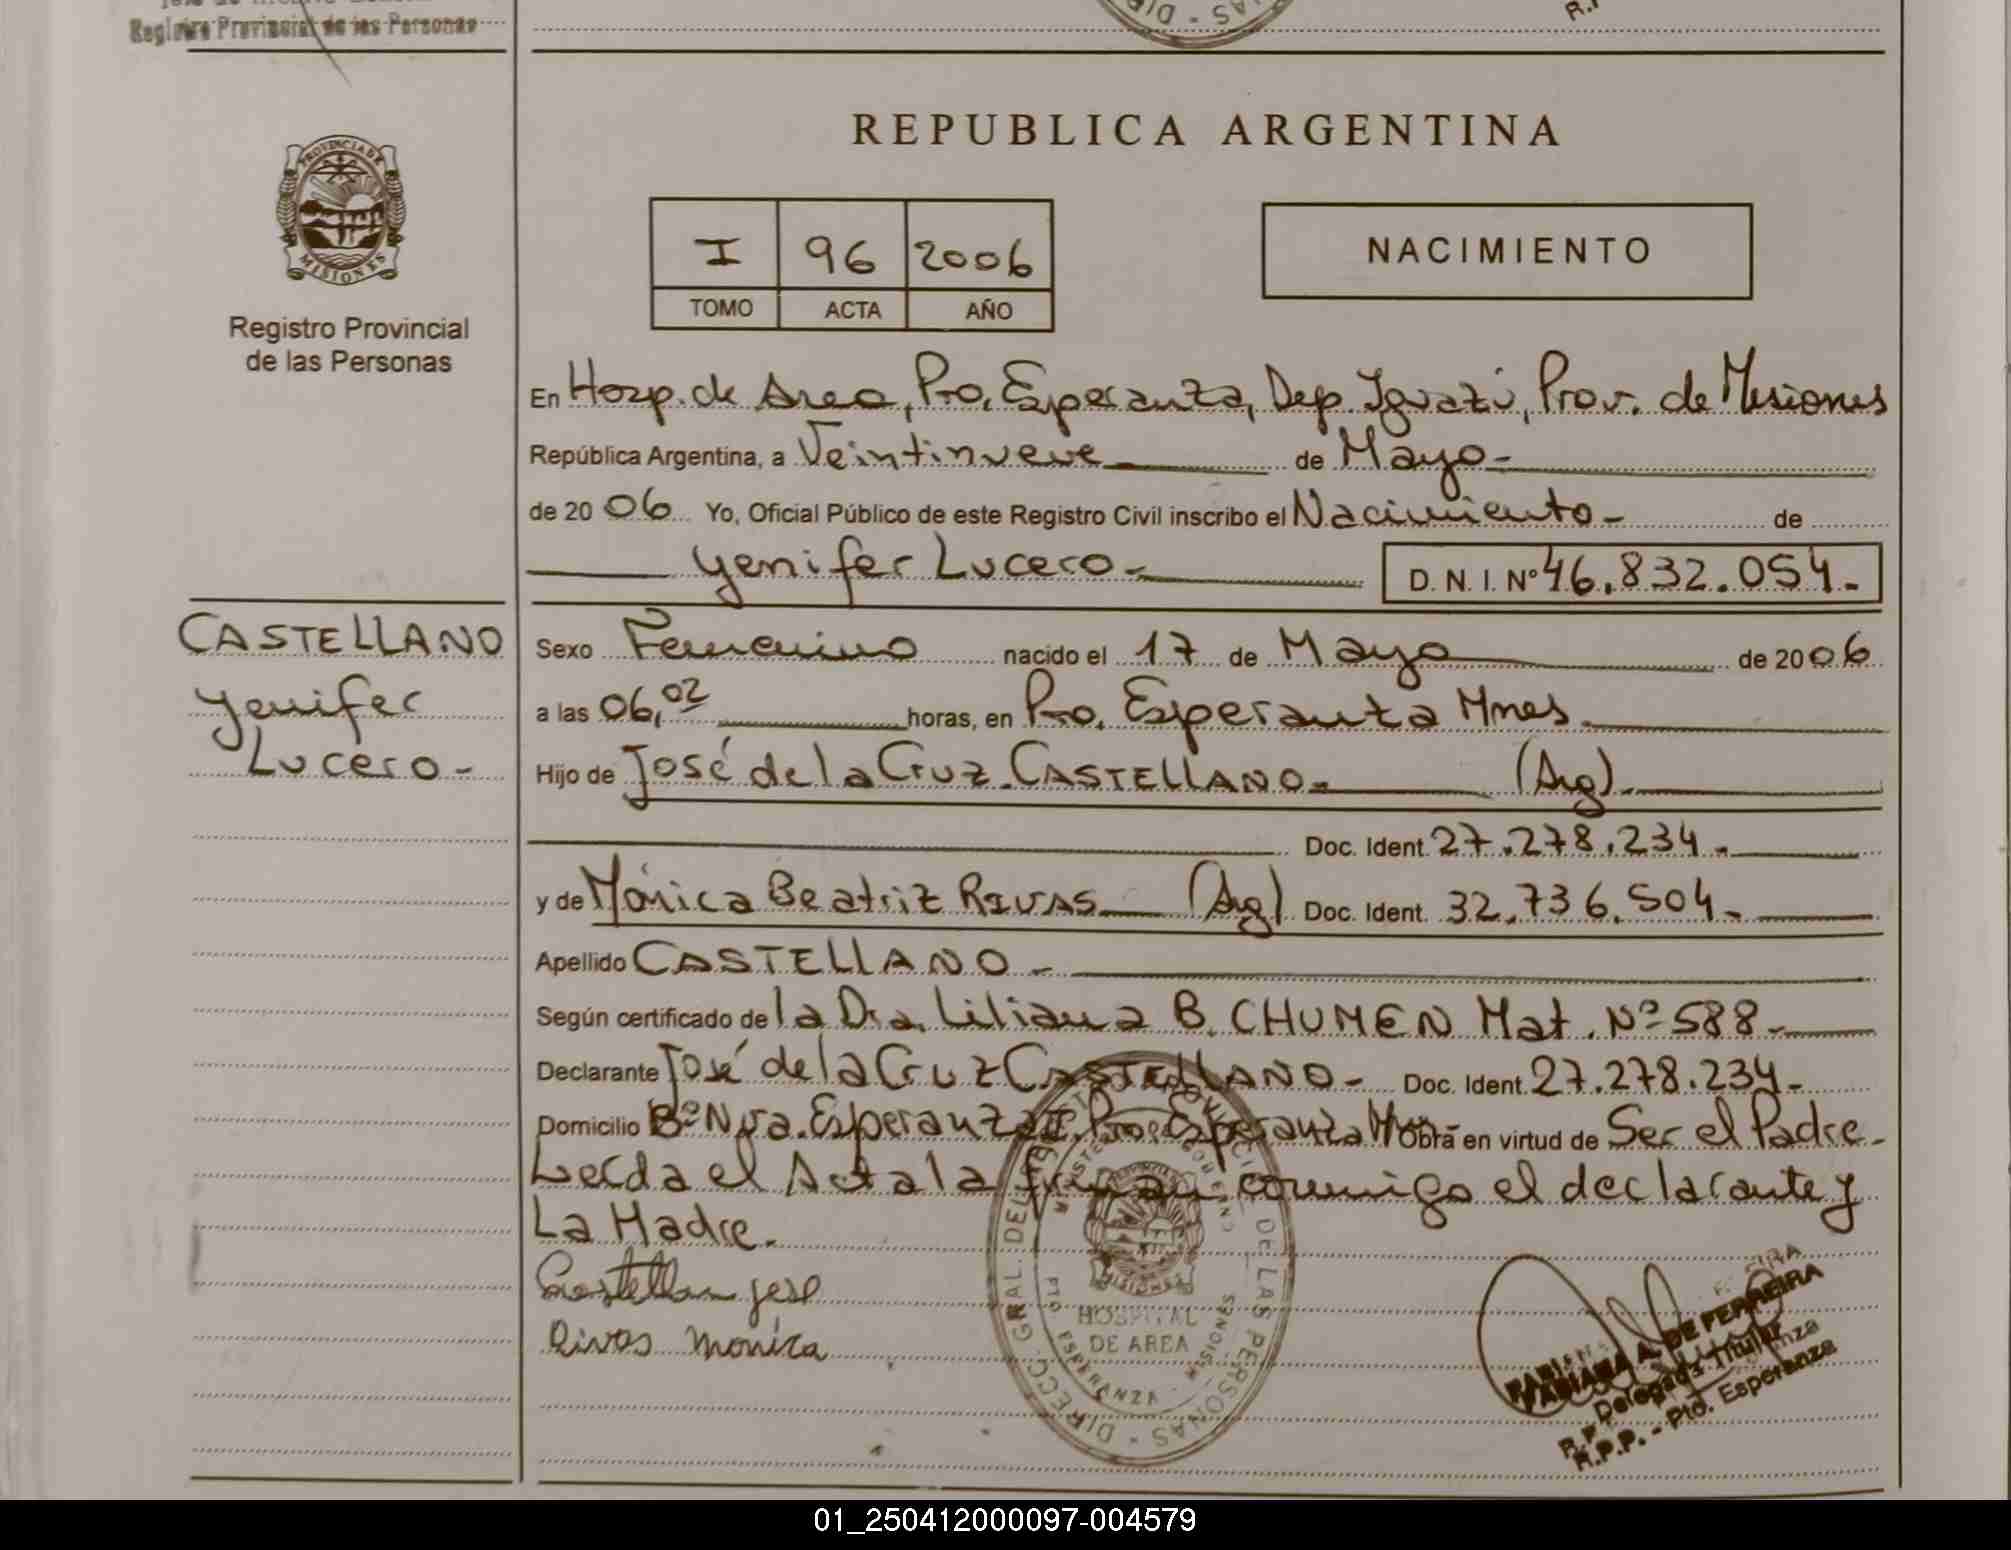 Registro Provincial de las Personas
REPUBLICA ARGENTINA
PROVINCIA DE
MISIONES
Registro Provincial
de las Personas
I 96 2006
TOMO ACTA AÑO
NACIMIENTO
En Hosp. de Area, Pto. Esperanza, Dep. Iguazú, Prov. de Misiones
República Argentina, a Veintinueve de Mayo-
de 2006 Yo, Oficial Público de este Registro Civil inscribo el Nacimiento- de
Yenifer Lucero- D. N. I. Nº 46.832.054.-
CASTELLANO
Yenifer
Lucero-
Sexo Femenino nacido el 17 de Mayo de 2006
a las 06,02 horas, en Pto. Esperanza Mnes.
Hijo de José de la Cruz CASTELLANO- (Arg).
Doc. Ident. 27.278.234.-
y de Mónica Beatriz RIVAS (Arg) Doc. Ident. 32.736.504.-
Apellido CASTELLANO-
Según certificado de la Dra. Liliana B. CHUMEN Mat. Nº 588-
Declarante José de la Cruz CASTELLANO- Doc. Ident. 27.278.234-
Domicilio Bº Nva. Esperanza II Pto. Esperanza Mnes Obra en virtud de Ser el Padre-
Leída el Acta la firman conmigo el declarante y
La Madre.
Castellan jose
Rivas monica
DIRECC. GRAL. DEL REGISTRO PROVINCIAL DE LAS PERSONAS
HOSPITAL
DE AREA
PTO. ESPERANZA - MISIONES
MISIONES
FABIANA A. DE FERREIRA
Delegada Titular
R.P.P. - Pto. Esperanza
01_250412000097-004579